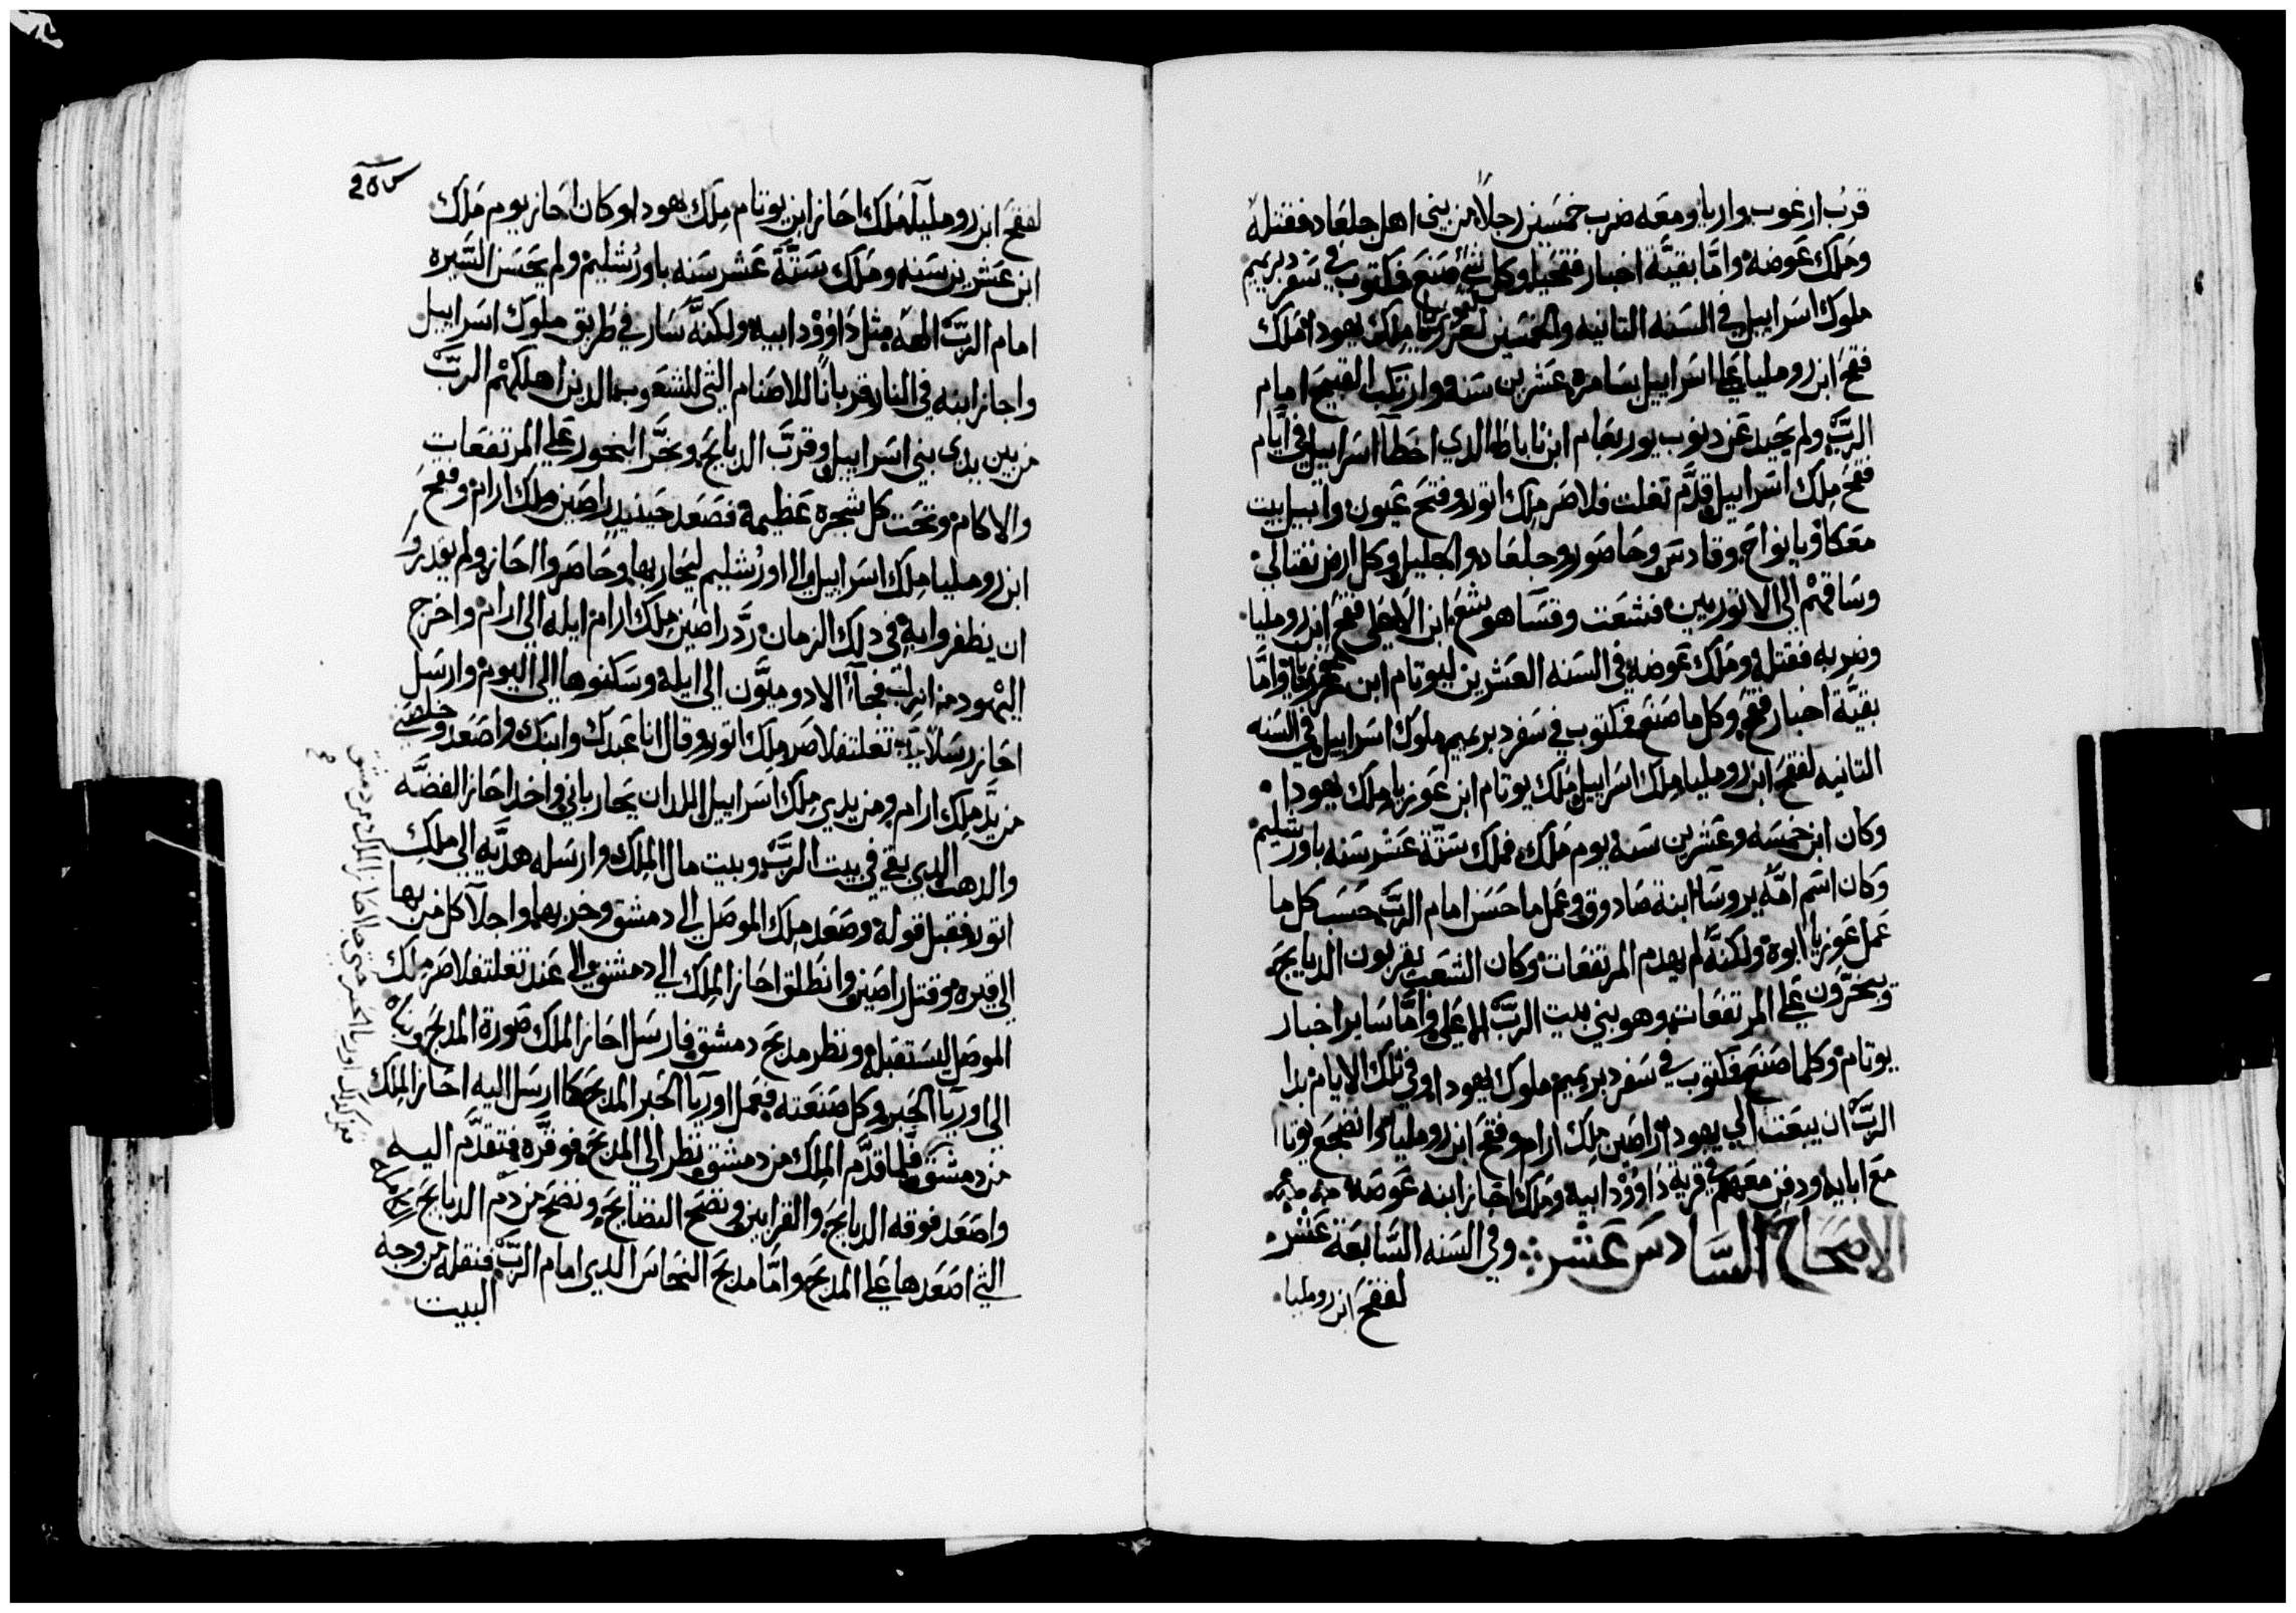 قرب ارغوب واريا ومعه ضرب خمسين رجلاً من بني اهل جلعاد فقتله
وملك عوضه واما بقيّة اخبار فقحيا وكل شي صنع فمكتوب في سفر دبريميم
ملوك اسراييل في السنه التانيه والخمسين لعوزيا ملك يهودا ملك
فقح ابن روملياعلى اسراييل بسامره عشرين سنه وارتكب القبيح امام
الربّ ولم يحيد عن دنوب يوربعام ابن ناباط الدي اخطا اسراييل في ايام
فقح ملك اسراييل قدّم تغلت فلاصر ملك اتور وفتح عيون وابيل بيت
معكا ويانواح وقادس وحاصور وجلعاد والجليل وكل ارض نفتالي
وساقهم الى الاتوريين فتشعت وقسا هوشع ابن الا على فقح ابن رومليا
وضربه فقتله وملك عوضه في السنه العشرين ليوتام ابن عوزيا وامّا
بقيّة اخبار فقح وكل ما صنع فمكتوب في سفر دبريميم ملوك اسراييل في السنه
التانيه لفقح ابن رومليا ملك اسراييل ملك يوتام ابن عوزيا ملك يهودا
وكان ابن خمسه وعشرين سنه يوم ملك فملك ستّة عشر سنه باورشليم
وكان اسم امّه يروسا ابنة صادوق وعمل ما حسن امام الربّ حسب كل ما
عمل عوزيا ابوه ولكنّه لم يهدم المرتفعات وكان الشعب يقربون الدبايح
ويبخّرون على المرتفعات وهو بني بيت الربّ الاعلى وامّا ساير اخبار
يوتام وكلما صنع فمكتوب في سفر دبريميم ملوك يهودا وفي تلك الايام بدا
الربّ ان يبعت الي يهودا راصين ملك ارام وفقح ابن رومليا وانضجع يوتام
مع ابايه ودفن معهم في قرية داوود ابيه وملك احاز ابنه عوضه
الاصحاح السّادس عشر وفي السنه السّابعة عشر
لفقح ابن رومليا
لفقح ابن رومليا ملك احاز ابن يوتام ملك يهودا وكان احاز يوم ملك
ابن عشرين سنه وملك ستّة عشر سنه باورشليم ولم يحسن السّيره
امام الربّ الهه مثل داوود ابيه ولكنّه سار في طريق ملوك اسراييل
واجاز ابنه في النار قرباناً للاصنام التي للشعوب الدين اهلكهم الربّ
من بين يدي بني اسراييل وقرّب الدبايح وبخّر البخور على المرتفعات
والاكام وتحت كل شجره عظيمة فصعد حينيد راصين ملك ارام وفقح
ابن رومليا ملك اسراييل الى اورشليم ليحاربها وحاصروا احاز ولم يقدرو
ان يظفروا به في دلك الزمان ردّ راصين ملك ارام ايله الي ارام واخرج
اليهود من ايله فجآ الادوميّون الى ايلة وسكنوها الى اليوم وارسل
احاز رسلاً الى تغلتفلاصر ملك اتور وقال انا عبدك وابنك واصعد وخلصني
من يدّ ملك ارام ومن يدي ملك اسراييل اللدان يحارباني واخد احاز الفضّه
والدهب الدي بقي في بيت الربّ وبيت مال الملك وارسله هديّه الي ملك
اتور فقبل قوله وصعد ملك الموصل الي دمشق وخربها واجلا كل من بها
الي قيره وقتل راصين وانطلق احاز الملك الي دمشق الى عند تغلتفلاصر ملك
الموصل ليستقبله ونظر مدبح دمشق فارسل احاز الملك صورة المدبح وبناه
الى اوريا الحبر وكل صنعته فعمل اوريا الحبر المدبح كما ارسل اليه احاز الملك
من دمشق فلما قدّم الملك من دمشق نظر الي المدبح فوقّره فتقدّم اليه
واصعد فوقه الدبايح والقرابين ونضح النضايح ونضح من دم الدبايح
التي اصعدها على المدبح وامّا مدبح النحاس الدي امام الربّ فنقله من وجه
البيت